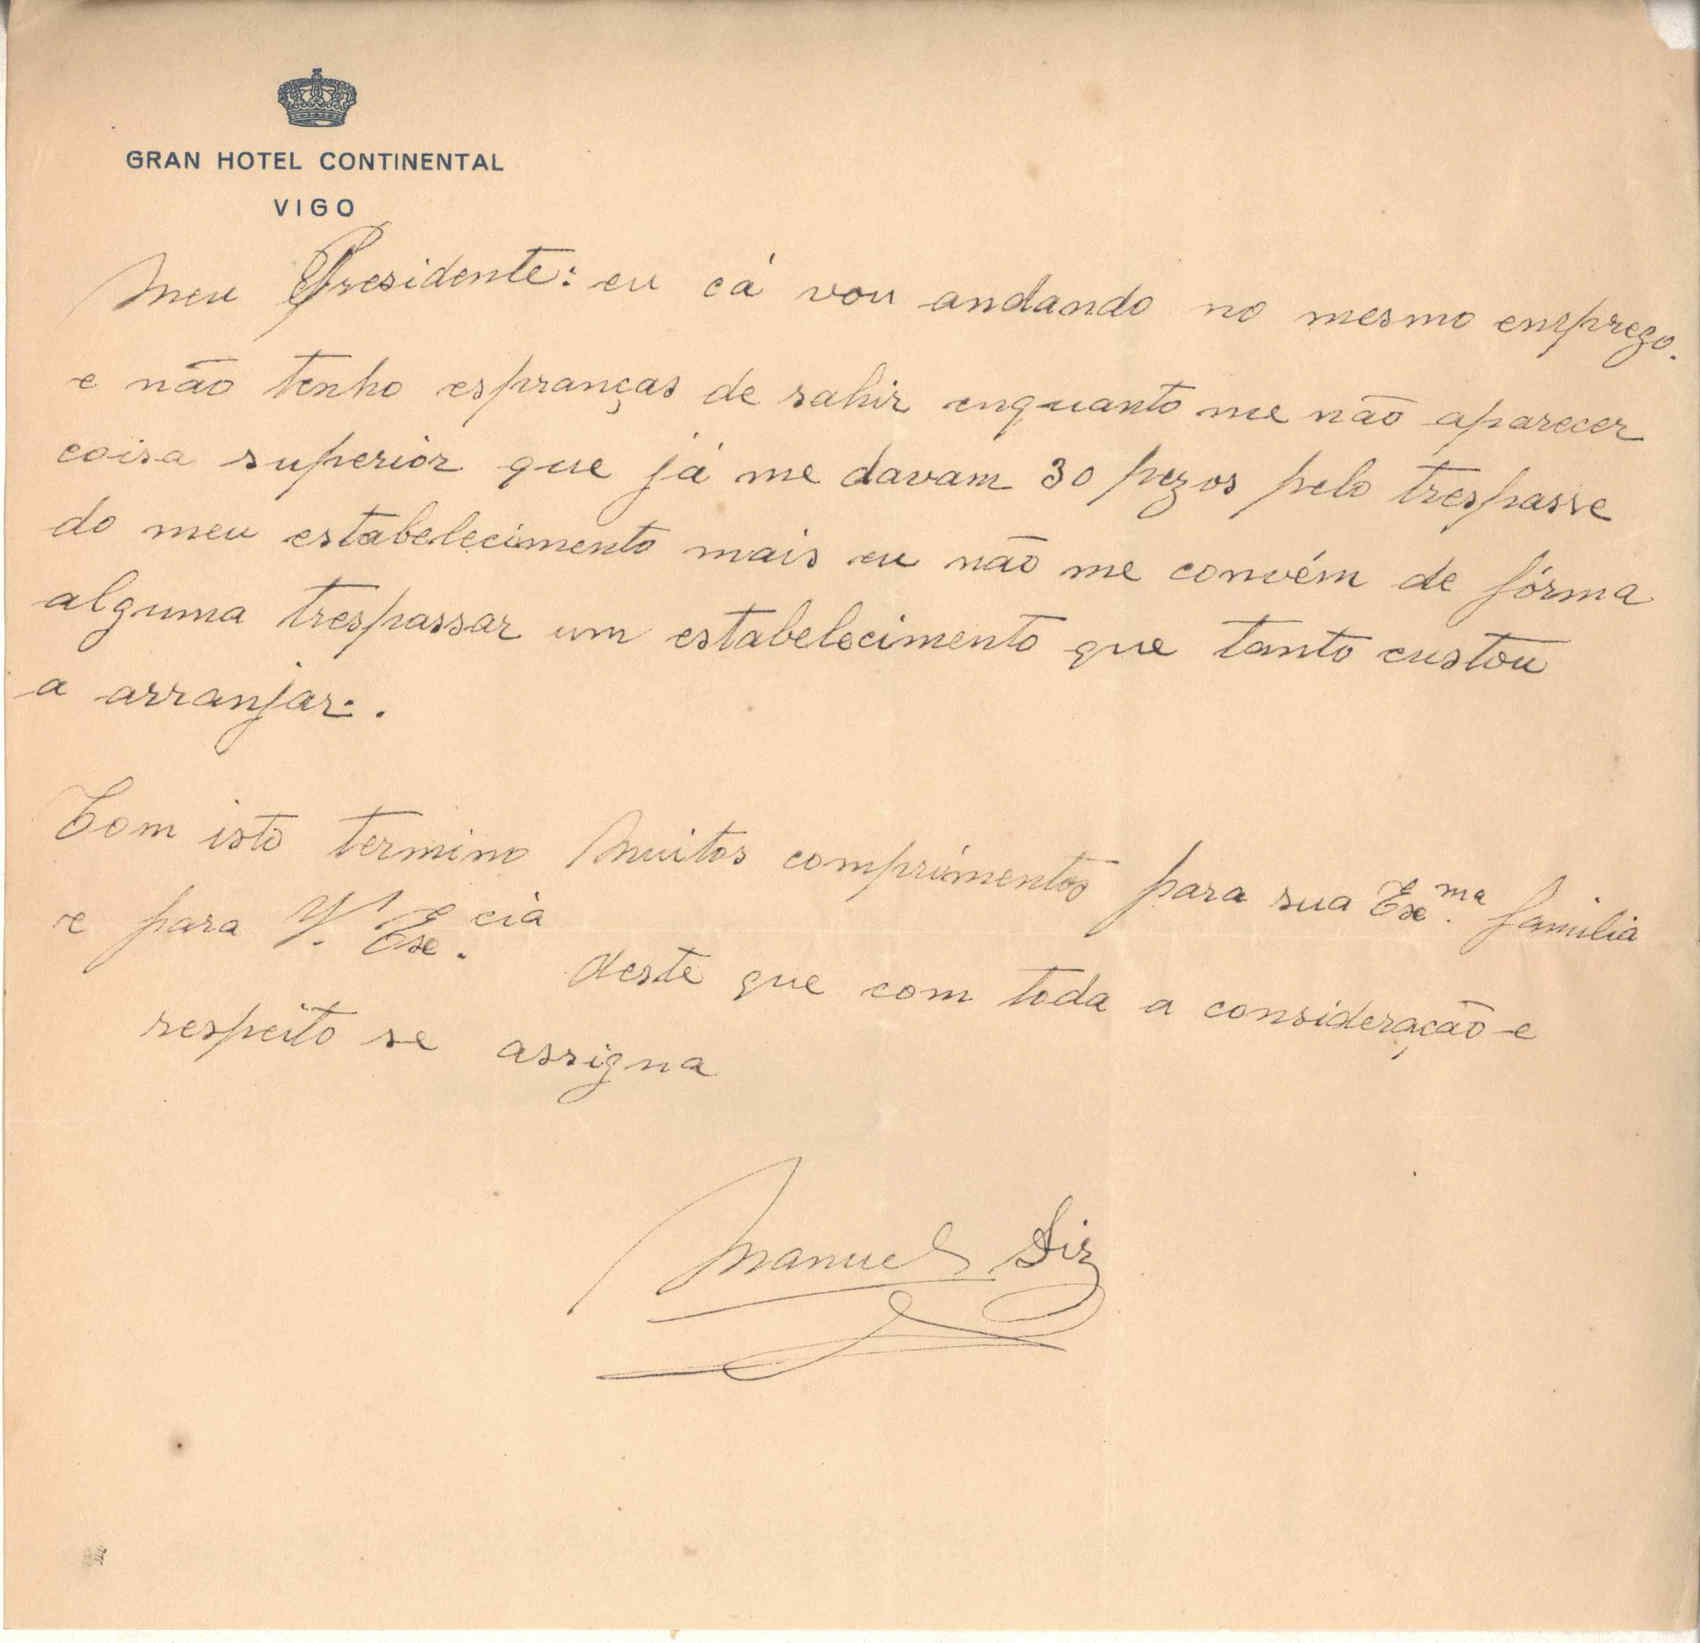 GRAN HOTEL CONTINENTAL
VIGO
Meu Presidente: eu cá vou andando no mesmo emprego.
e não tenho espranças de sahir enquanto me não aparecer
coisa superior que já me davam 30 pezos pelo trespasse
do meu estabelecimento mais eu não me convém de fórma
alguma trespassar um estabelecimento que tanto custou
a arranjar.
Com isto termino Muitos comprimentos para sua Exc.ma familia
e para V. Exc.cia deste que com toda a consideração e
respeito se assigna
Manuel Diz